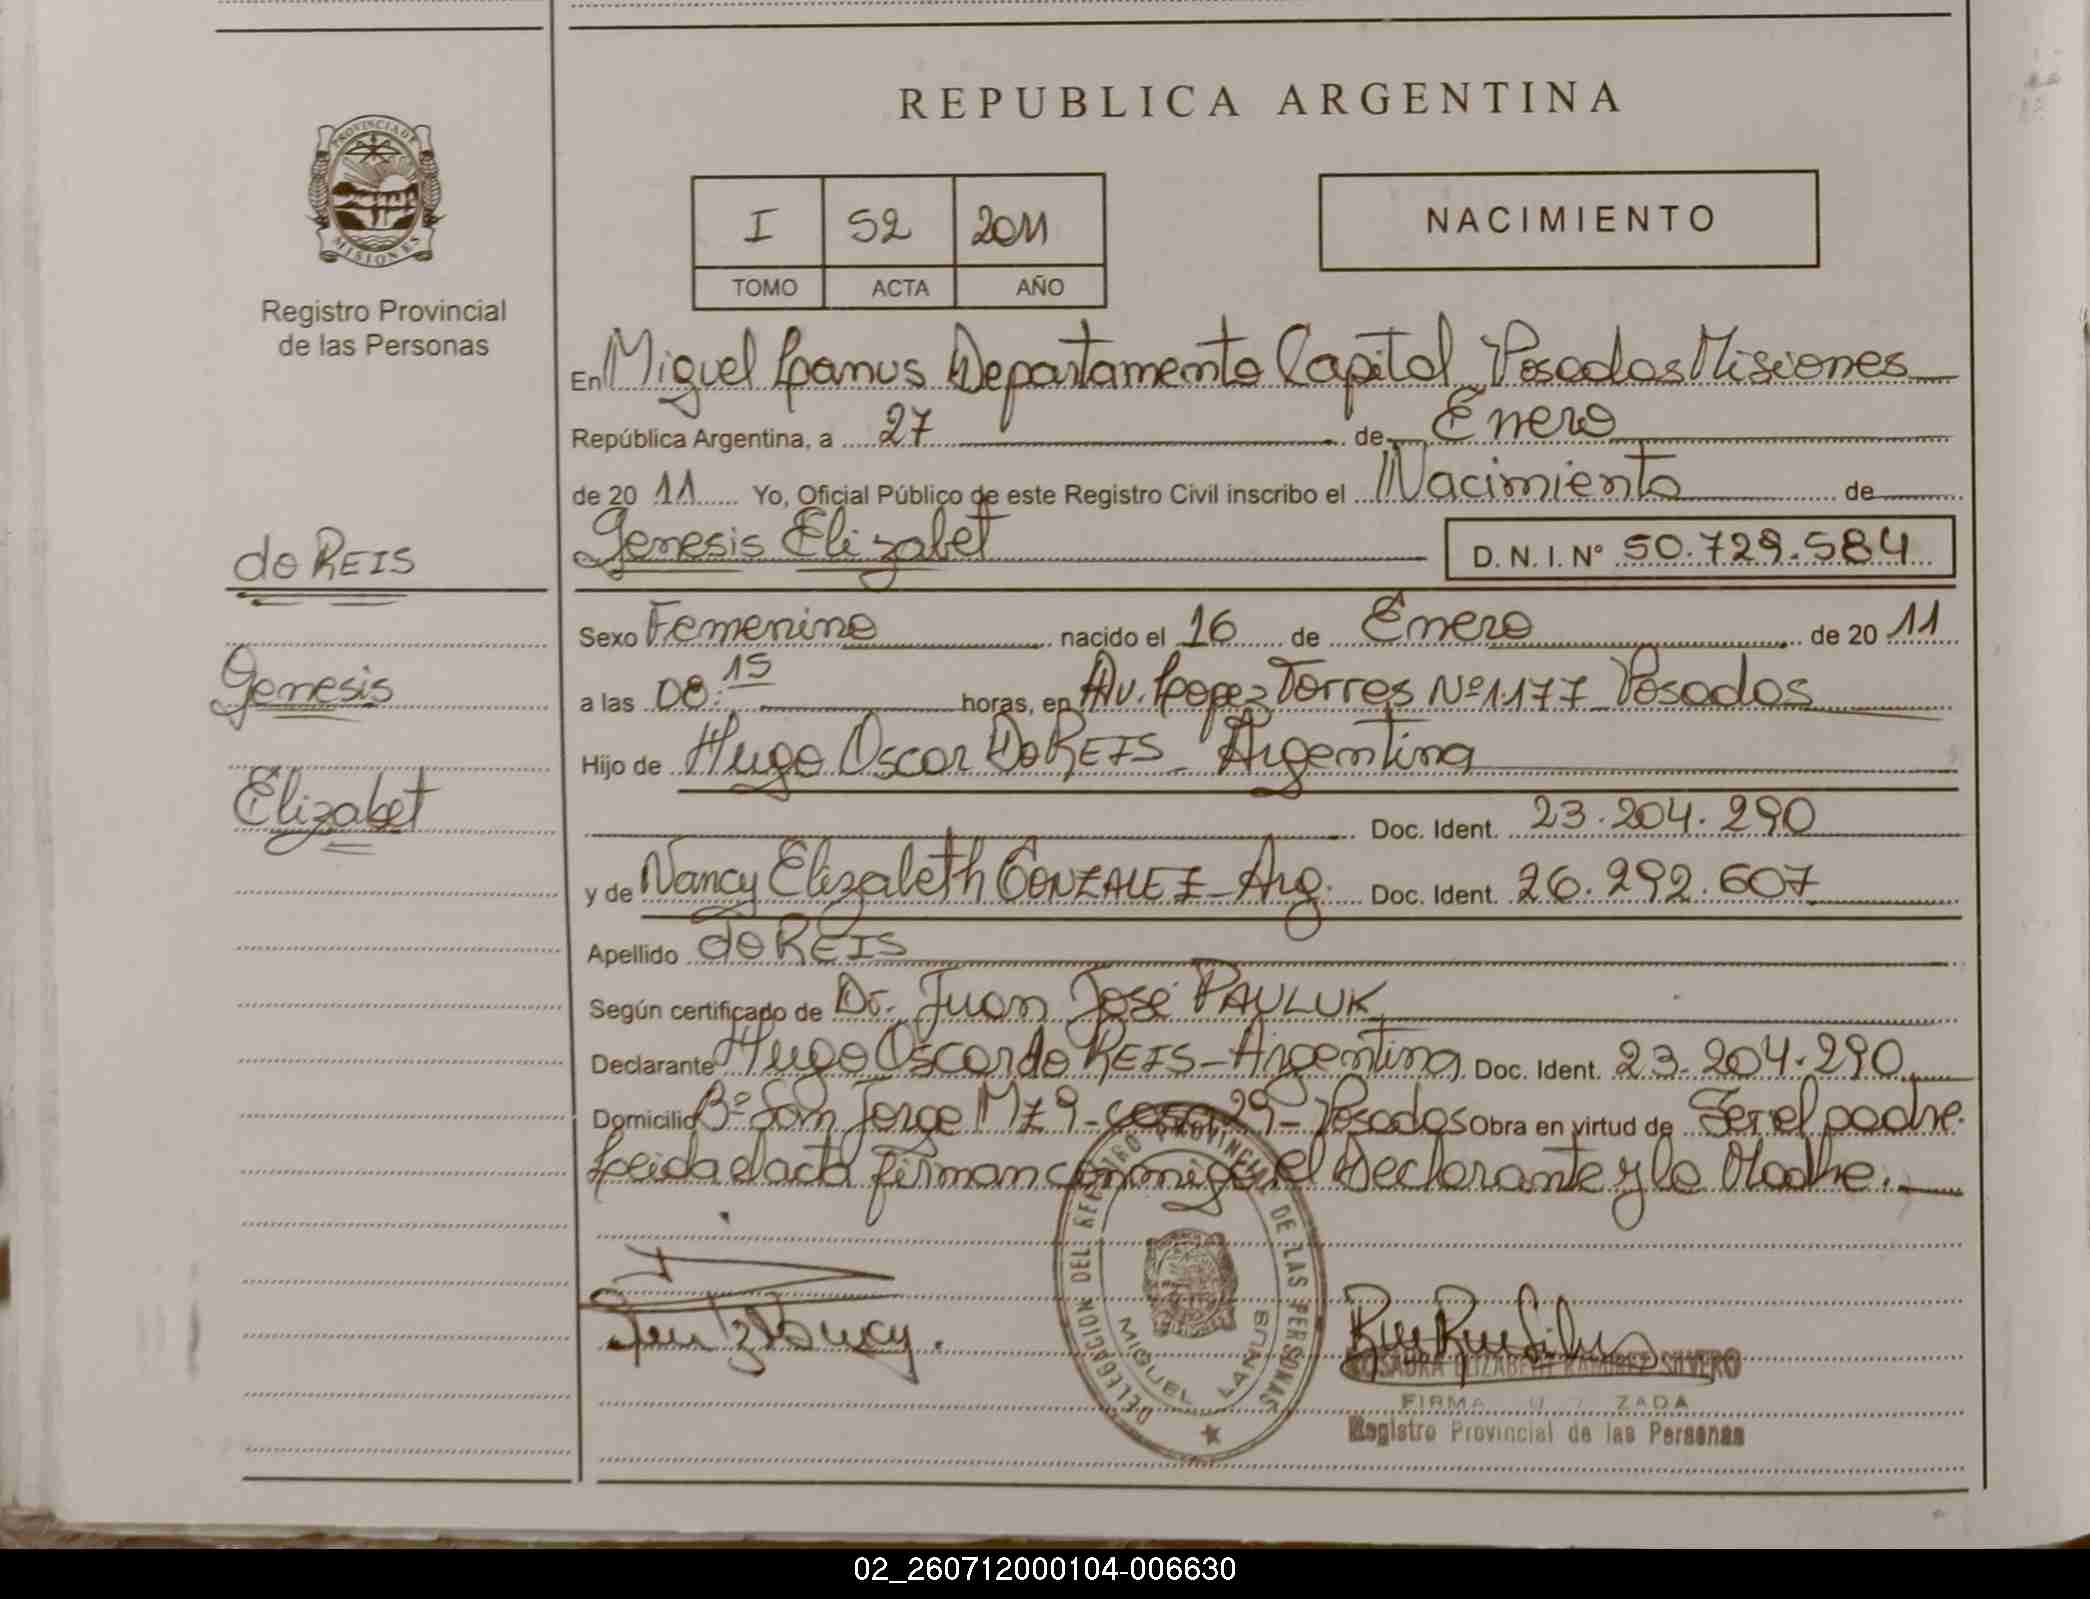 REPUBLICA ARGENTINA
PROVINCIA DE
MISIONES
Registro Provincial
de las Personas
I 52 2011
TOMO ACTA AÑO
NACIMIENTO
En Miguel Lanus Departamento Capital Posadas Misiones
República Argentina, a 27 de Enero
de 20 11 Yo, Oficial Público de este Registro Civil inscribo el Nacimiento de
Genesis Elizabet
D. N. I. N° 50.729.584
do REIS
Genesis
Elizabet
Sexo Femenino nacido el 16 de Enero de 20 11
a las 08:15 horas, en Av. Lopez Torres Nº 1177 Posadas
Hijo de Hugo Oscar Do REIS - Argentina
Doc. Ident. 23.204.290
y de Nancy Elizabeth GONZALEZ - Arg. Doc. Ident. 26.292.607
Apellido do REIS
Según certificado de Dr. Juan José PAULUK
Declarante Hugo Oscar do REIS - Argentina Doc. Ident. 23.204.290
Domicilio Bº San Jorge Mz 9 - casa 29 - Posadas Obra en virtud de Ser el padre.
Leida el acta firman conmigo el Declarante y la Madre.
DELEGACION DEL REGISTRO PROVINCIAL DE LAS PERSONAS
MIGUEL LANUS
ROSAURA ELIZABETH RAMIREZ SILVERO
FIRMA
Registro Provincial de las Personas
02_260712000104-006630